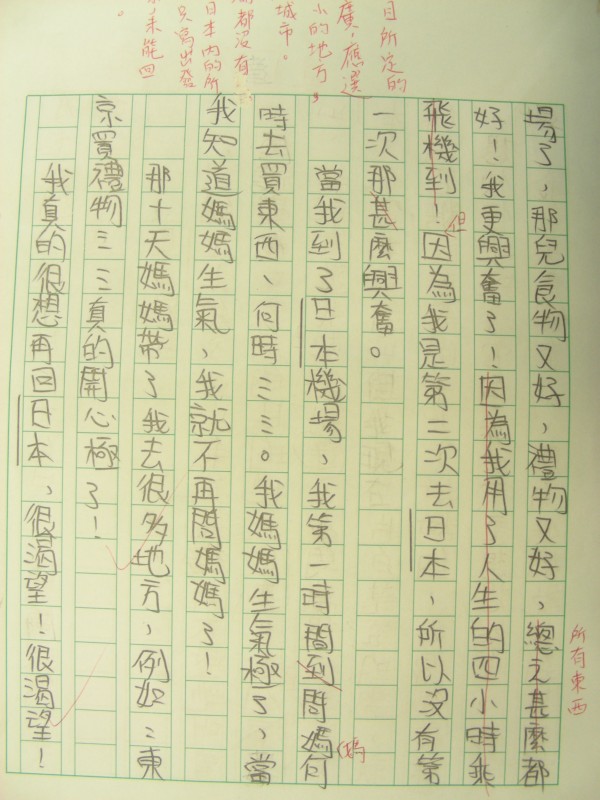 目所定的
廣，應選
小的地方，
城市。
都沒有
日本內的所
只寫出發
未能回
。
所有東西
場了，那兒食物又好，禮物又好，總之甚麼都
好！我更興奮了！因為我用了人生的四小時乘
飛機到！因為我是第二次去日本，所以沒有第
但
一次那甚麼興奮。
當我到了日本機場，我第一時間到問媽何
媽
時去買東西、何時……。我媽媽生氣極了，當
我知道媽媽生氣，我就不再問媽媽了！
那十天媽媽帶了我去很多地方，例如：東
京買禮物……真的開心極了！
我真的很想再回日本，很渴望！很渴望！